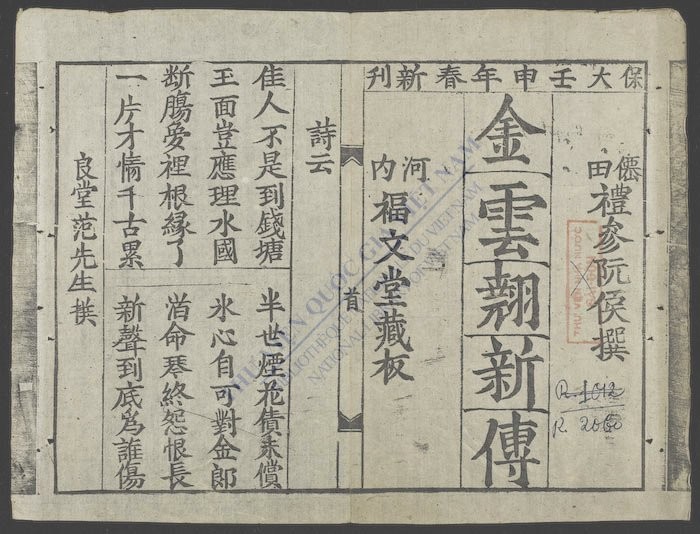 保大壬申年春新刊
僊田禮參阮侯撰
金雲翹新傳
河內福文堂藏板
首
詩云
佳人不是到錢塘 半世煙花債未償
玉面豈應埋水國 氷心自可對金郎
断膓夢裡根緣了 命琴終怨恨長
一片才情千古累 新聲到底爲誰傷
良堂范先生撰
R. 1012
R. 2060
THƯ VIỆN QUỐC GIA VIỆT NAM
BIBLIOTHÈQUE NATIONALE DU VIETNAM
NATIONAL LIBRARY OF VIETNAM